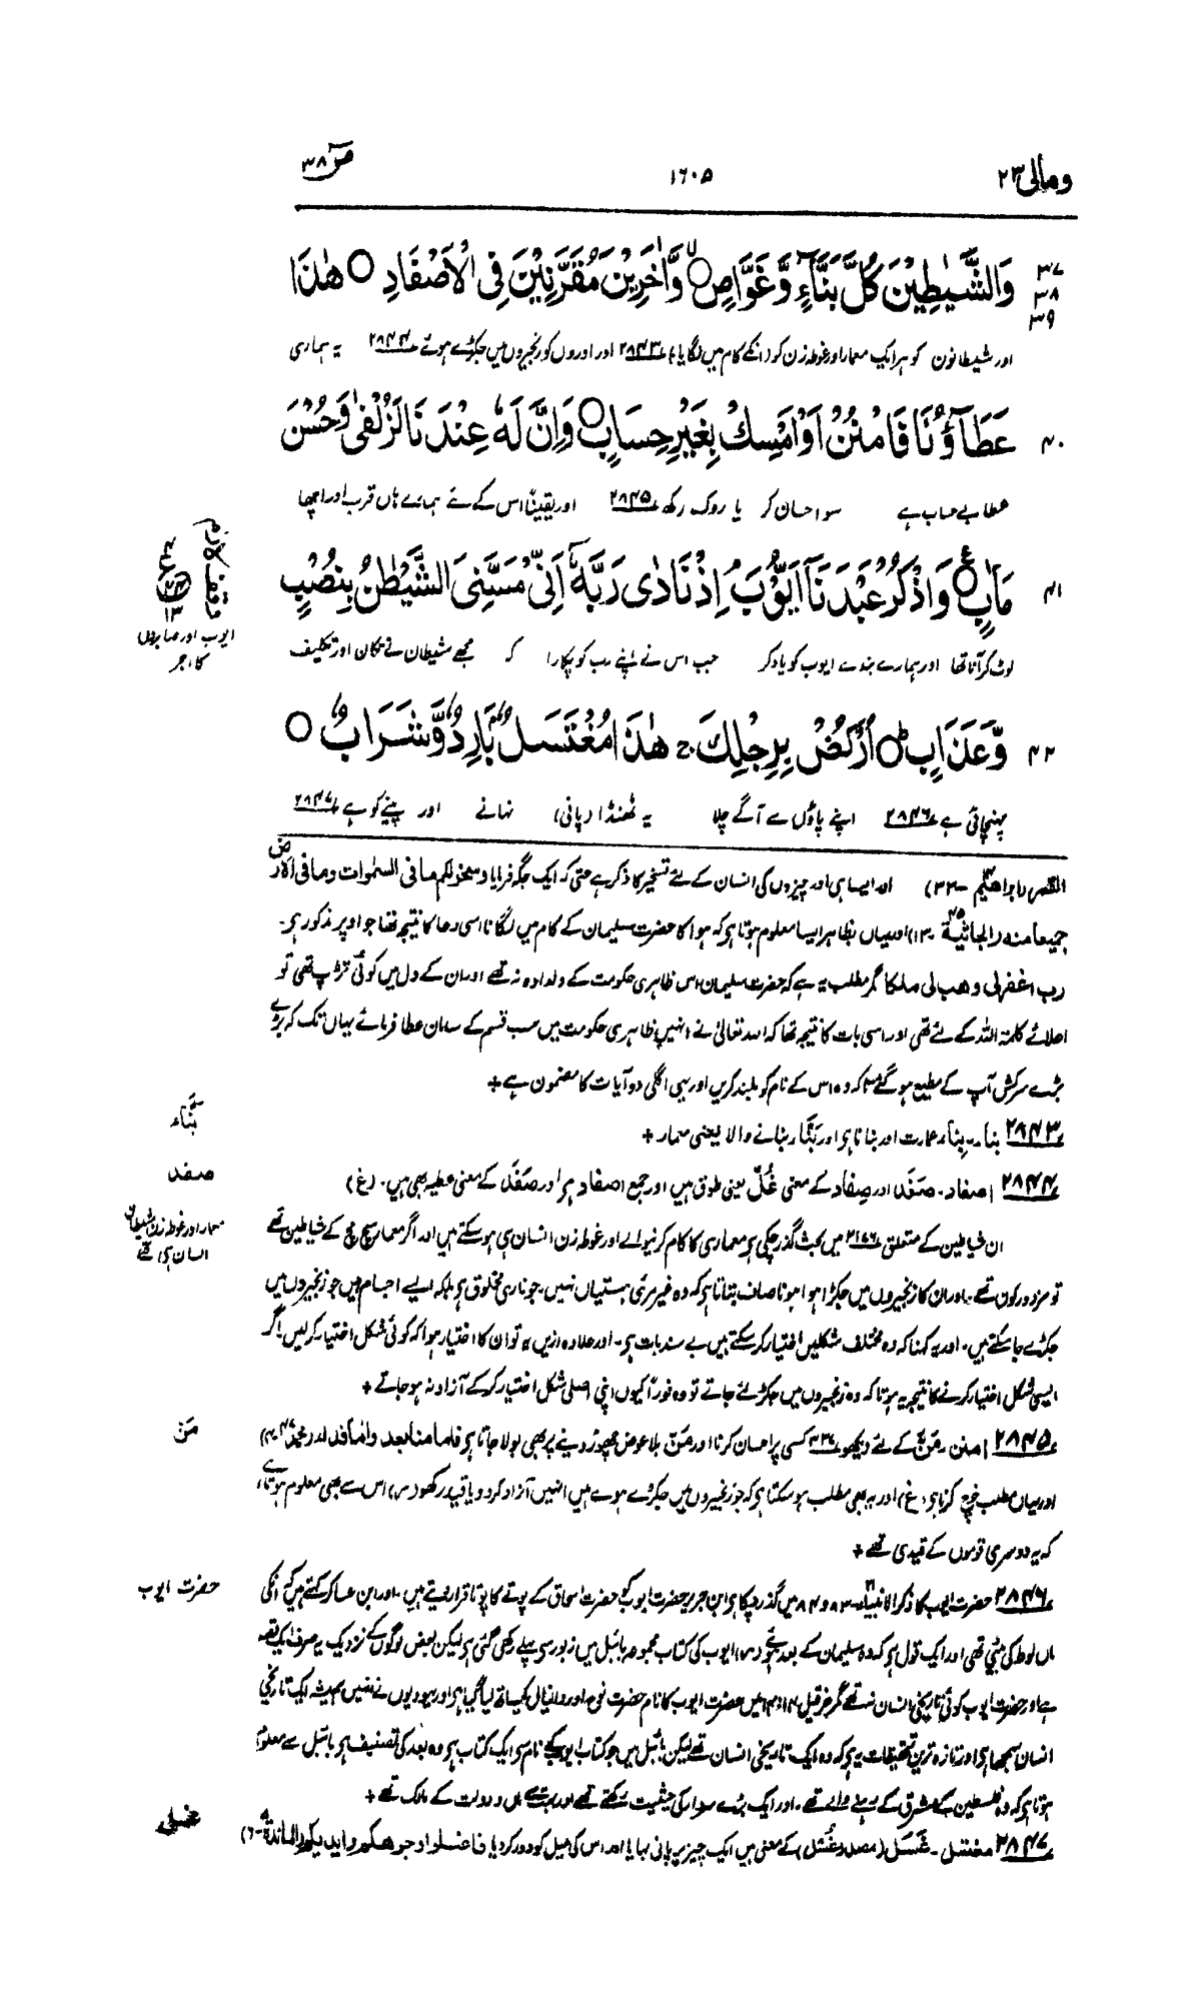 ومالی ۲۳
۱۶۰۵
ص ۳۸
۳۷ ۳۸ ۳۹
وَالشَّيٰطِيْنَ كُلَّ بَنَّآءٍ وَّغَوَّاصٍ ○ وَّاٰخَرِيْنَ مُقَرَّنِيْنَ فِى الْاَصْفَادِ ○ هٰذَا
اور شیطانوں کو ہر ایک معمار اور غوطہ زن کو (انکے کام میں لگایا) ۲۸۴۳ اور اوروں کو زنجیروں میں جکڑے ہوئے ۲۸۴۴ یہ ہماری
۴۰ عَطَآؤُنَا فَامْنُنْ اَوْ اَمْسِكْ بِغَيْرِ حِسَابٍ ○ وَاِنَّ لَهٗ عِنْدَنَا لَزُلْفٰى وَحُسْنَ
عطا بے حساب ہے سو احسان کر یا روک رکھ ۲۸۴۵ اور یقیناً اس کے لئے ہمارے ہاں قرب اور اچھا
۴۱ مَاٰبٍ ○ وَاذْكُرْ عَبْدَنَآ اَيُّوْبَ ۘ اِذْ نَادٰى رَبَّهٗٓ اَنِّىْ مَسَّنِىَ الشَّيْطٰنُ بِنُصْبٍ
وقف لازم
ایوب اور صابروں
کا اجر
لوٹ کر آنا تھا اور ہمارے بندے ایوب کو یاد کر جب اس نے اپنے رب کو پکارا کہ مجھے شیطان نے تکان اور تکلیف
۴۲ وَّعَذَابٍ ○ اُرْكُضْ بِرِجْلِكَ ۚ هٰذَا مُغْتَسَلٌۢ بَارِدٌ وَّشَرَابٌ ○
پہنچائی ہے ۲۸۴۶ اپنے پاؤں سے آگے چلا یہ ٹھنڈا (پانی) نہانے اور پینے کو ہے ۲۸۴۷
القمر (ابراھیم - ۳۳) اور ایسا ہی اور چیزوں کی انسان کے لئے تسخیر کا ذکر ہے حتی کہ ایک جگہ فرمایا وسخر لکم ما فی السموات وما فی الارض
جمیعا منہ (الجاثیۃ - ۱۳) اور یہاں بظاہر ایسا معلوم ہوتا ہے کہ ہوا کا حضرت سلیمان کے کام میں لگانا اسی دعا کا نتیجہ تھا جو اوپر مذکور ہے۔
رب اغفر لی وھب لی ملکا مگر مطلب یہ ہے کہ حضرت سلیمان اس ظاہری حکومت کے دلدادہ نہ تھے اور ان کے دل میں کوئی تڑپ تھی تو
اعلائے کلمۃ اللہ کے لئے تھی اور اسی بات کا نتیجہ تھا کہ اللہ تعالیٰ نے انہیں ظاہری حکومت میں سب قسم کے سامان عطا فرمائے یہاں تک کہ بڑے
بڑے سرکش آپ کے مطیع ہو گئے تاکہ وہ اس کے نام کو بلند کریں اور یہی اگلی دو آیات کا مضمون ہے +
بَنَّاء
۲۸۴۳ بناء۔ بِنَاء عمارت اور بنانا ہے اور بَنَّاء بنانے والا یعنی معمار +
صفد
۲۸۴۴ اصفاد۔ صَفَد اور صِفاد کے معنی غُلّ یعنی طوق ہیں اور جمع اصفاد ہے اور صَفَد کے معنی عطیہ بھی ہیں۔ (غ)
معمار اور غوطہ زن شیطان
انسان ہی تھے
ان شیاطین کے متعلق ۲۱۷۶ میں بحث گذر چکی ہے معماری کا کام کرنیوالے اور غوطہ زن انسان ہی ہو سکتے ہیں اور اگر معمار سچ مچ کے شیاطین تھے
تو مزدور کون تھے۔ اور ان کا زنجیروں میں جکڑا ہوا ہونا صاف بتاتا ہے کہ وہ غیر مرئی ہستیاں نہیں جو ناری مخلوق ہے بلکہ ایسے اجسام ہیں جو زنجیروں میں
جکڑے جا سکتے ہیں۔ اور یہ کہنا کہ وہ مختلف شکلیں اختیار کر سکتے ہیں بے سند بات ہے۔ اور علاوہ ازیں یہ تو ان کا اختیار ہوا کہ کوئی شکل اختیار کر لیں اگر
ایسی شکل اختیار کرنے کا نتیجہ یہ ہوتا کہ وہ زنجیروں میں جکڑ لئے جاتے تو وہ فوراً کیوں اپنی اصلی شکل اختیار کر کے آزاد نہ ہو جاتے +
مَنّ
۲۸۴۵ امنن۔ مَنّ کے لئے دیکھو ۳۳۶ کسی پر احسان کرنا اور مَنّ بلا عوض چھوڑ دینے پر بھی بولا جاتا ہے فاما منا بعد واما فداء (محمد - ۴)
اور یہاں مطلب خرچ کرنا ہے (غ) اور یہ بھی مطلب ہو سکتا ہے کہ جو زنجیروں میں جکڑے ہوئے ہیں انہیں آزاد کردو یا قید رکھو (ر) اس سے بھی معلوم ہوتا ہے
کہ یہ دوسری قوموں کے قیدی تھے +
حضرت ایوب
۲۸۴۶ حضرت ایوب کا ذکر الانبیاء - ۸۳ و ۸۴ میں گذر چکا ہے ابن جریر حضرت ایوب کو حضرت اسحاق کے پوتے کا پوتا قرار دیتے ہیں۔ اور ابن عساکر کہتے ہیں کہ انکی
ماں لوط کی بیٹی تھی اور ایک قول ہے کہ وہ سلیمان کے بعد تھے (ر) ایوب کی کتاب مجموعہ بائبل میں زبور سے پہلے رکھی گئی ہے لیکن بعض لوگوں کے نزدیک یہ صرف ایک قصہ
ہے اور حضرت ایوب کوئی تاریخی انسان نہ تھے مگر حزقیل ۱۴:۱۴ میں حضرت ایوب کا نام حضرت نوح اور دانیال کیساتھ لیا گیا ہے اور یہودیوں نے انہیں ہمیشہ ایک تاریخی
انسان سمجھا ہے اور تازہ ترین تحقیقات یہ ہے کہ وہ ایک تاریخی انسان تھے لیکن بائبل میں جو کتاب ایوب کے نام سے ایک کتاب ہے وہ بعد کی تصنیف ہے بائبل سے معلوم
ہوتا ہے کہ وہ فلسطین کے مشرق کے رہنے والے تھے۔ اور ایک بڑے سردار کی حیثیت رکھتے تھے اور بہت سے مال و دولت کے مالک تھے +
غسل
۲۸۴۷ مغتسل۔ غَسَل (مصدر غُسْل) کے معنی ہیں ایک چیز پر پانی بہایا اور اس کی میل کو دور کر دیا فاغسلوا وجوھکم وایدیکم (المائدۃ - ۶)